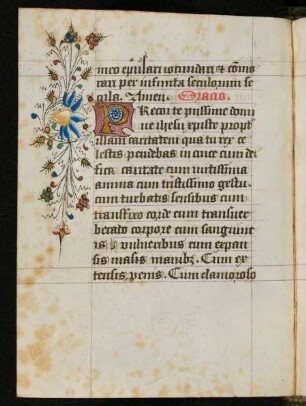 meo epulari iocundari et com̄o
rari per infinita seculorum se
cula. Amen. Oracio.
PRecor te piissime domi
ne ihesu xpiste propt
illam caritatem qua tu rex ce
lestis pendebas in cruce cum dei
fica caritate cum mitissima
anima cum tristissimo gestu
cum turbatis sensibus cum
transfixo corde cum transuer
berato corpore cum sanguine
is vulneribus cum expan
sis manibꝫ. Cum ex
tensis venis. Cum clamoroso